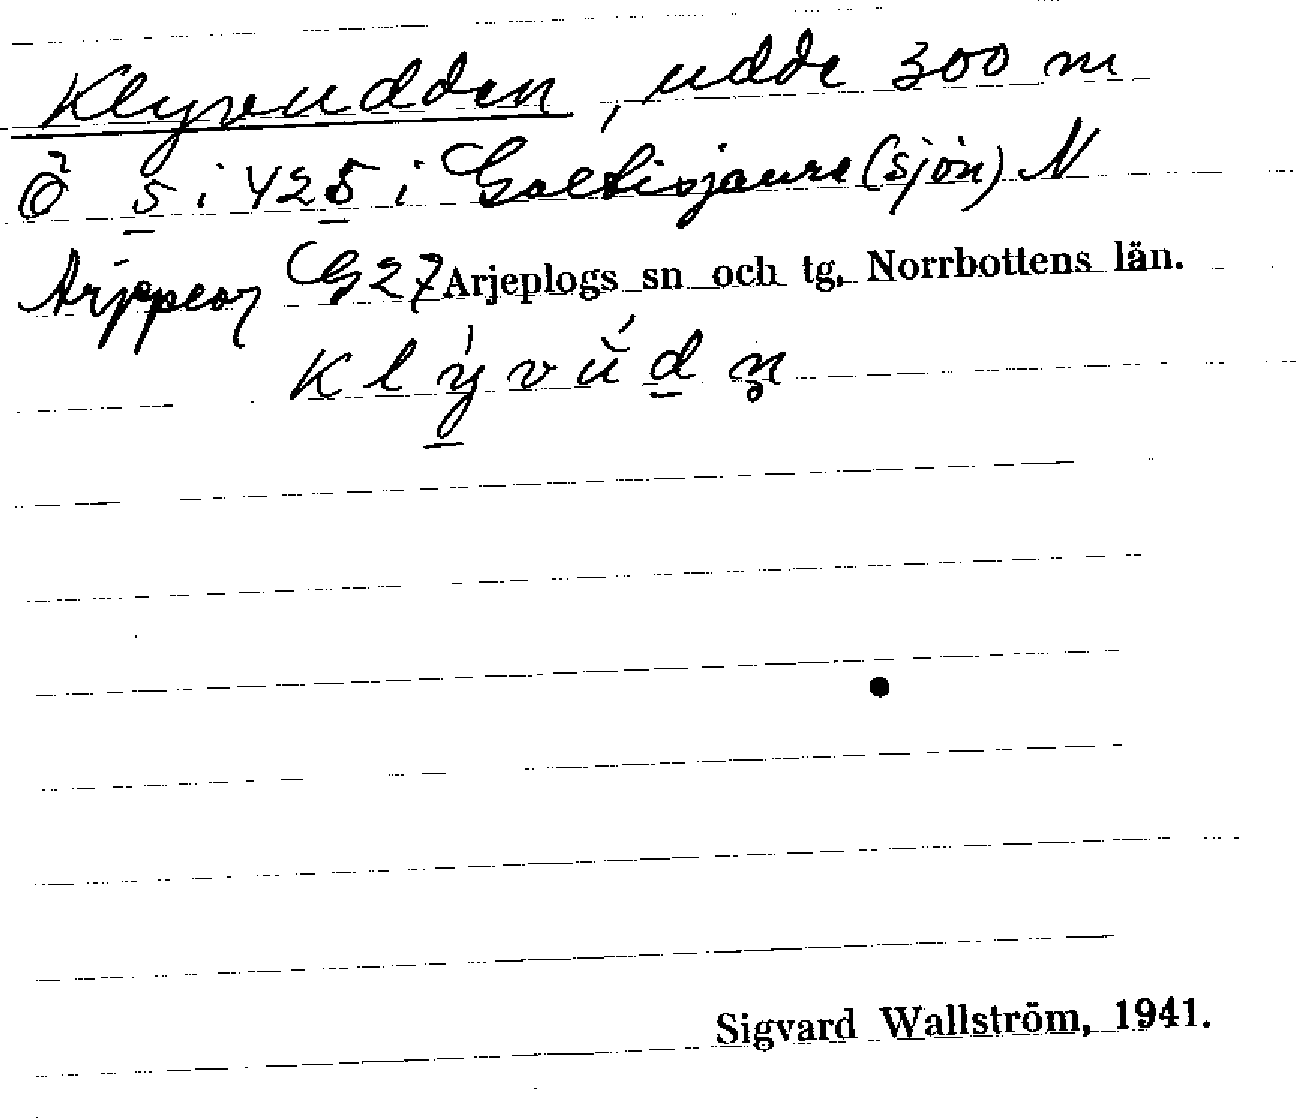 Klyvudden, udde 300 m
Ö 5 i 425 i Galtisjaure (sjön) N
G27 Arjeplogs sn och tg, Norrbottens län.
Klyvudn̥
Sigvard Wallström, 1941.